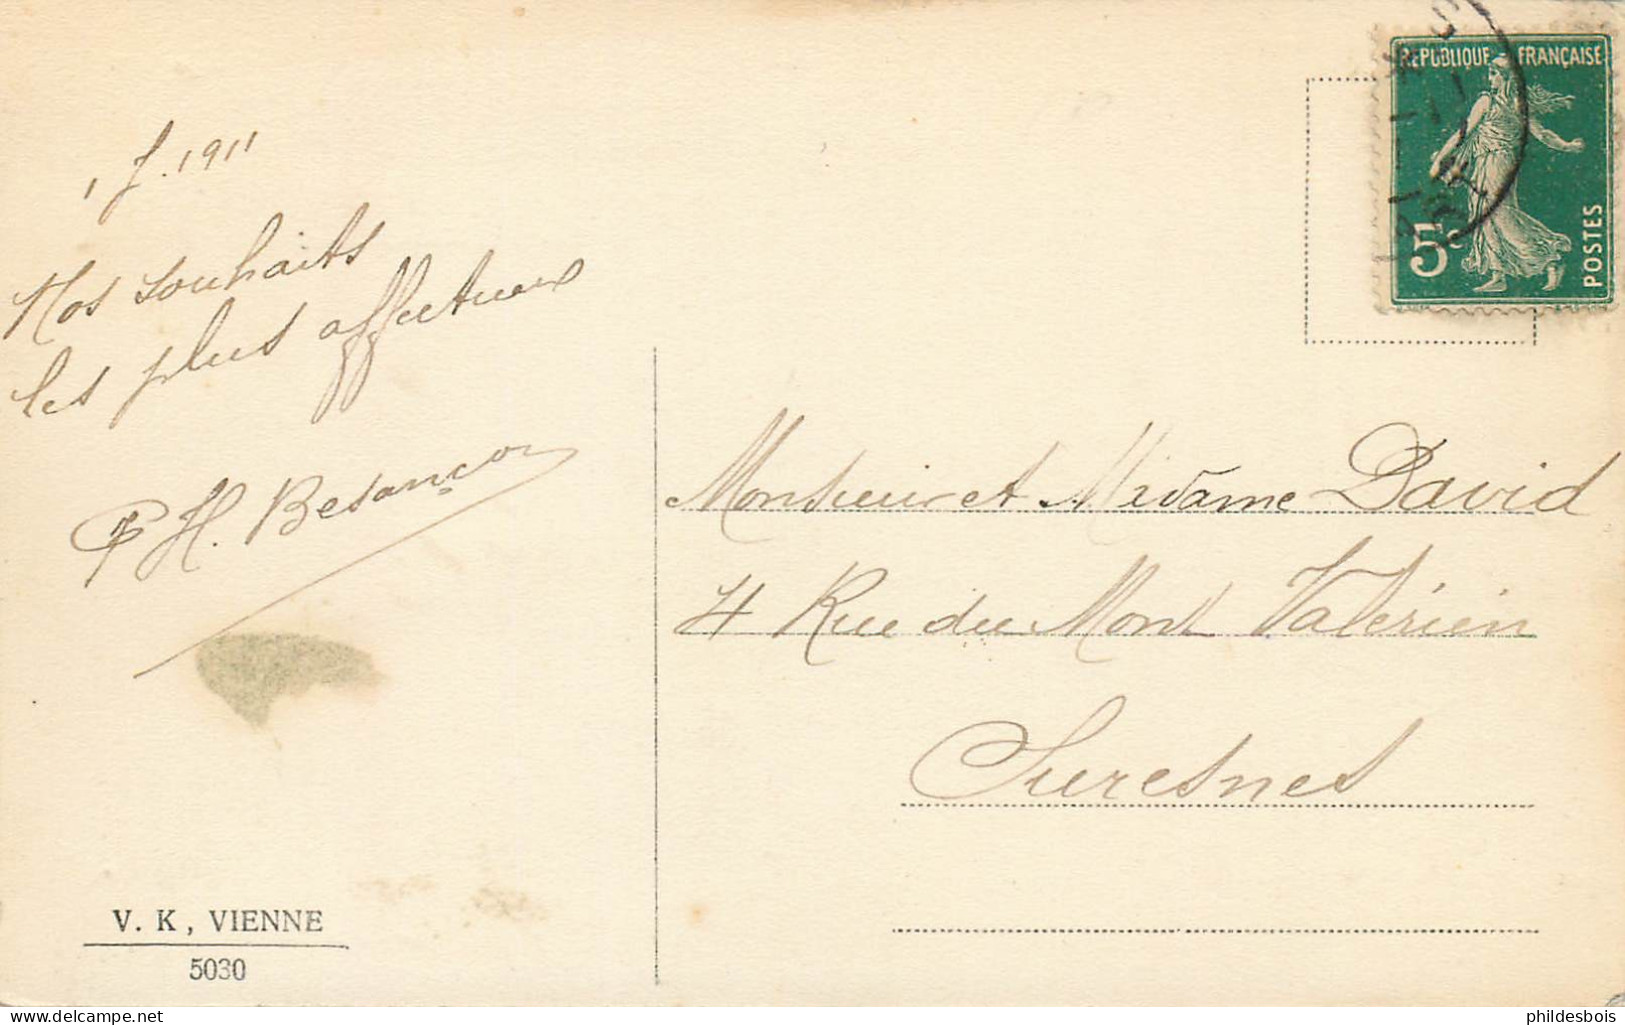 1 J. 1911
Nos souhaits
les plus affectueux
H. Besançon
V. K, VIENNE
5030
REPUBLIQUE - FRANÇAISE
5c
POSTES
Monsieur et Madame David
4 Rue du Mont Valérien
Suresnes
delcampe.net
phildesbois